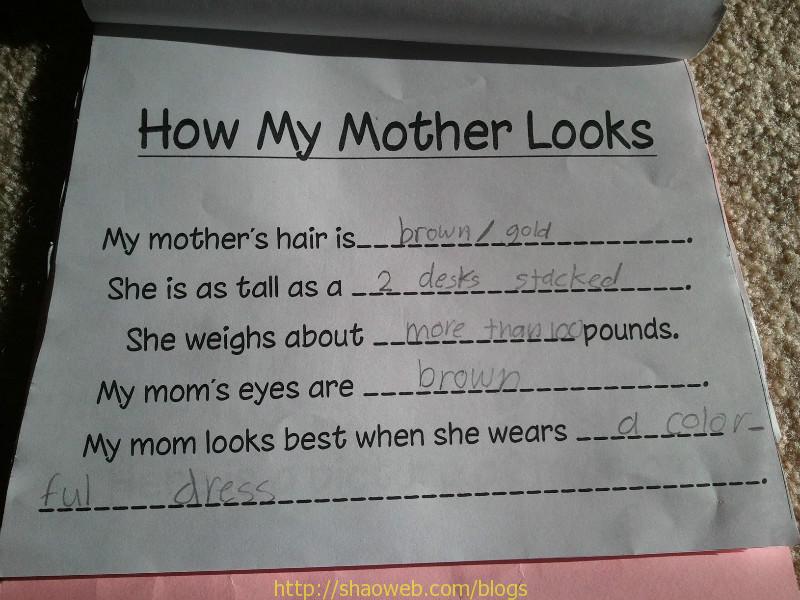 How My Mother Looks
My mother's hair is brown / gold.
She is as tall as a 2 desks stacked.
She weighs about more than 100 pounds.
My mom's eyes are brown.
My mom looks best when she wears a color-
ful dress.
http://shaoweb.com/blogs